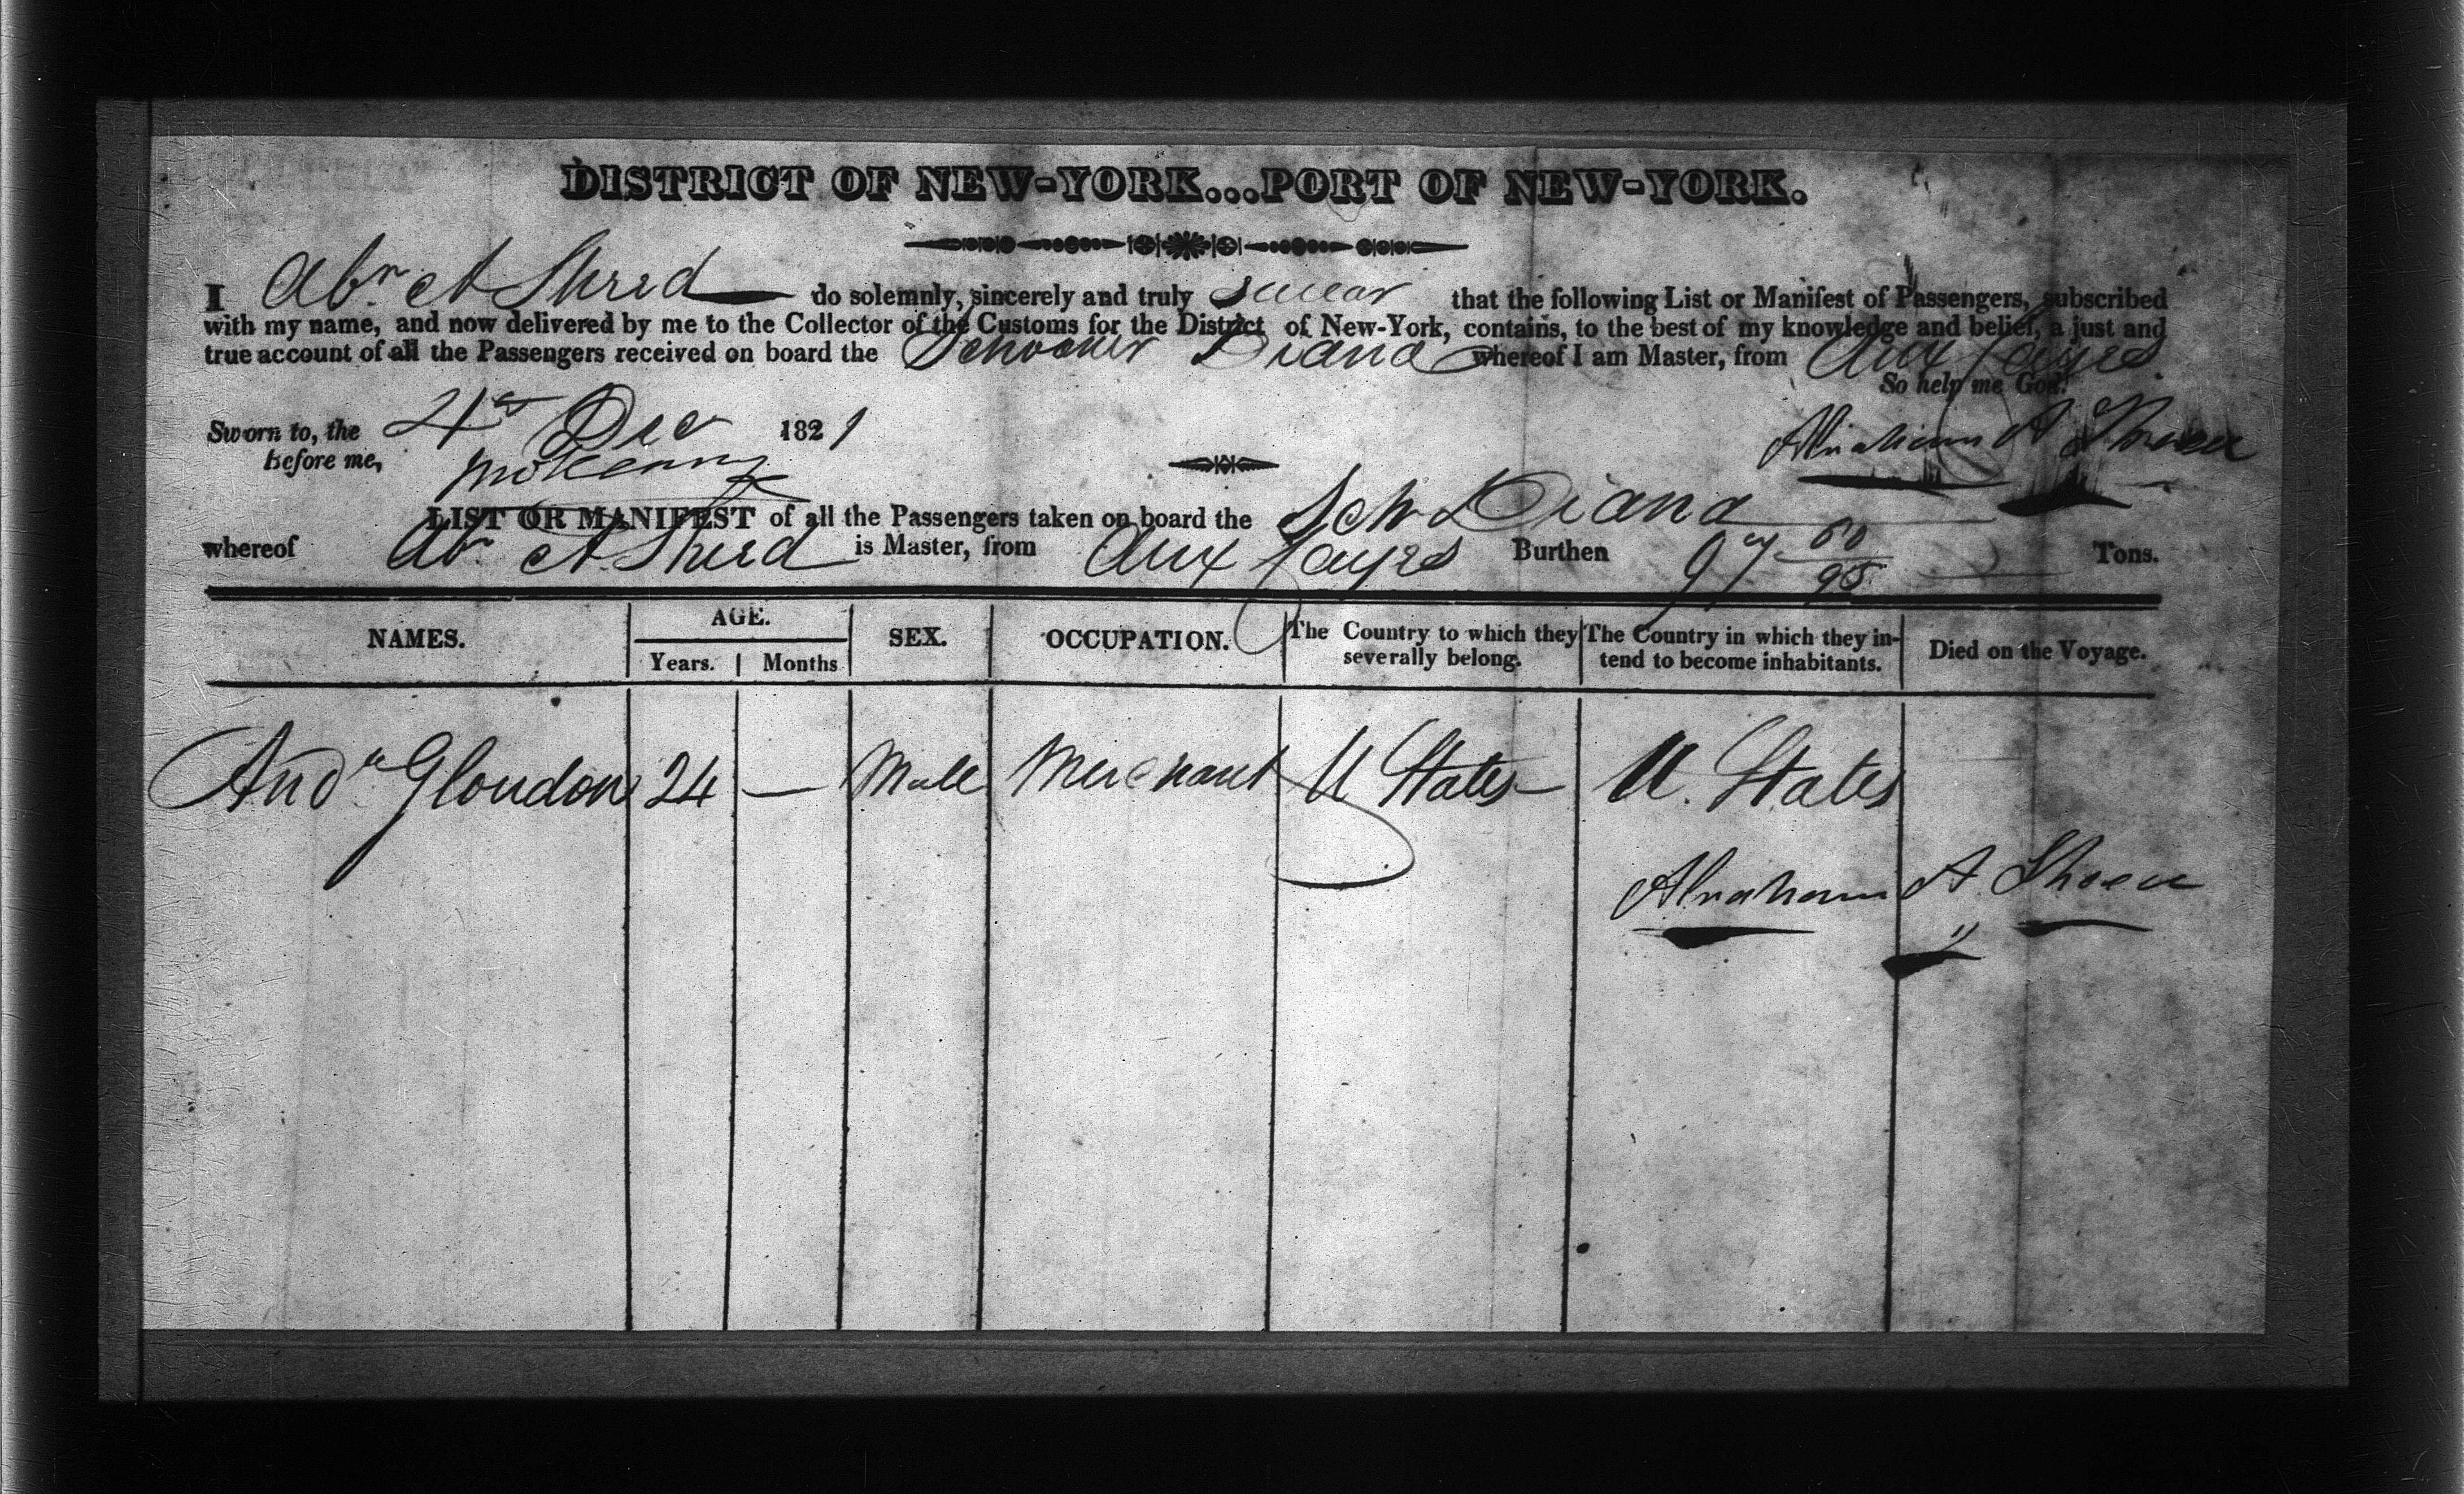 DISTRICT OF NEW-YORK...PORT OF NEW-YORK.
I Abm. A Shred do solemnly, sincerely and truly swear that the following List or Manifest of Passengers, subscribed
with my name, and now delivered by me to the Collector of the Customs for the District of New-York, contains, to the best of my knowledge and belief, a just and
true account of all the Passengers received on board the Schooner Diana whereof I am Master, from Aux Cayes.
So help me God.
Sworn to, the 4 Dec 1821
Abraham A
before me,
LIST OR MANIFEST of all the Passengers taken on board the Schr Diana
whereof Abm A. Shred is Master, from Aux Cayes Burthen 97 Tons.
NAMES. AGE. SEX. OCCUPATION. The Country to which they severally belong. The Country in which they intend to become inhabitants. Died on the Voyage.
Years. Months
Andw Gloudon 24 — Male Merchant U States U. States
Abraham A.